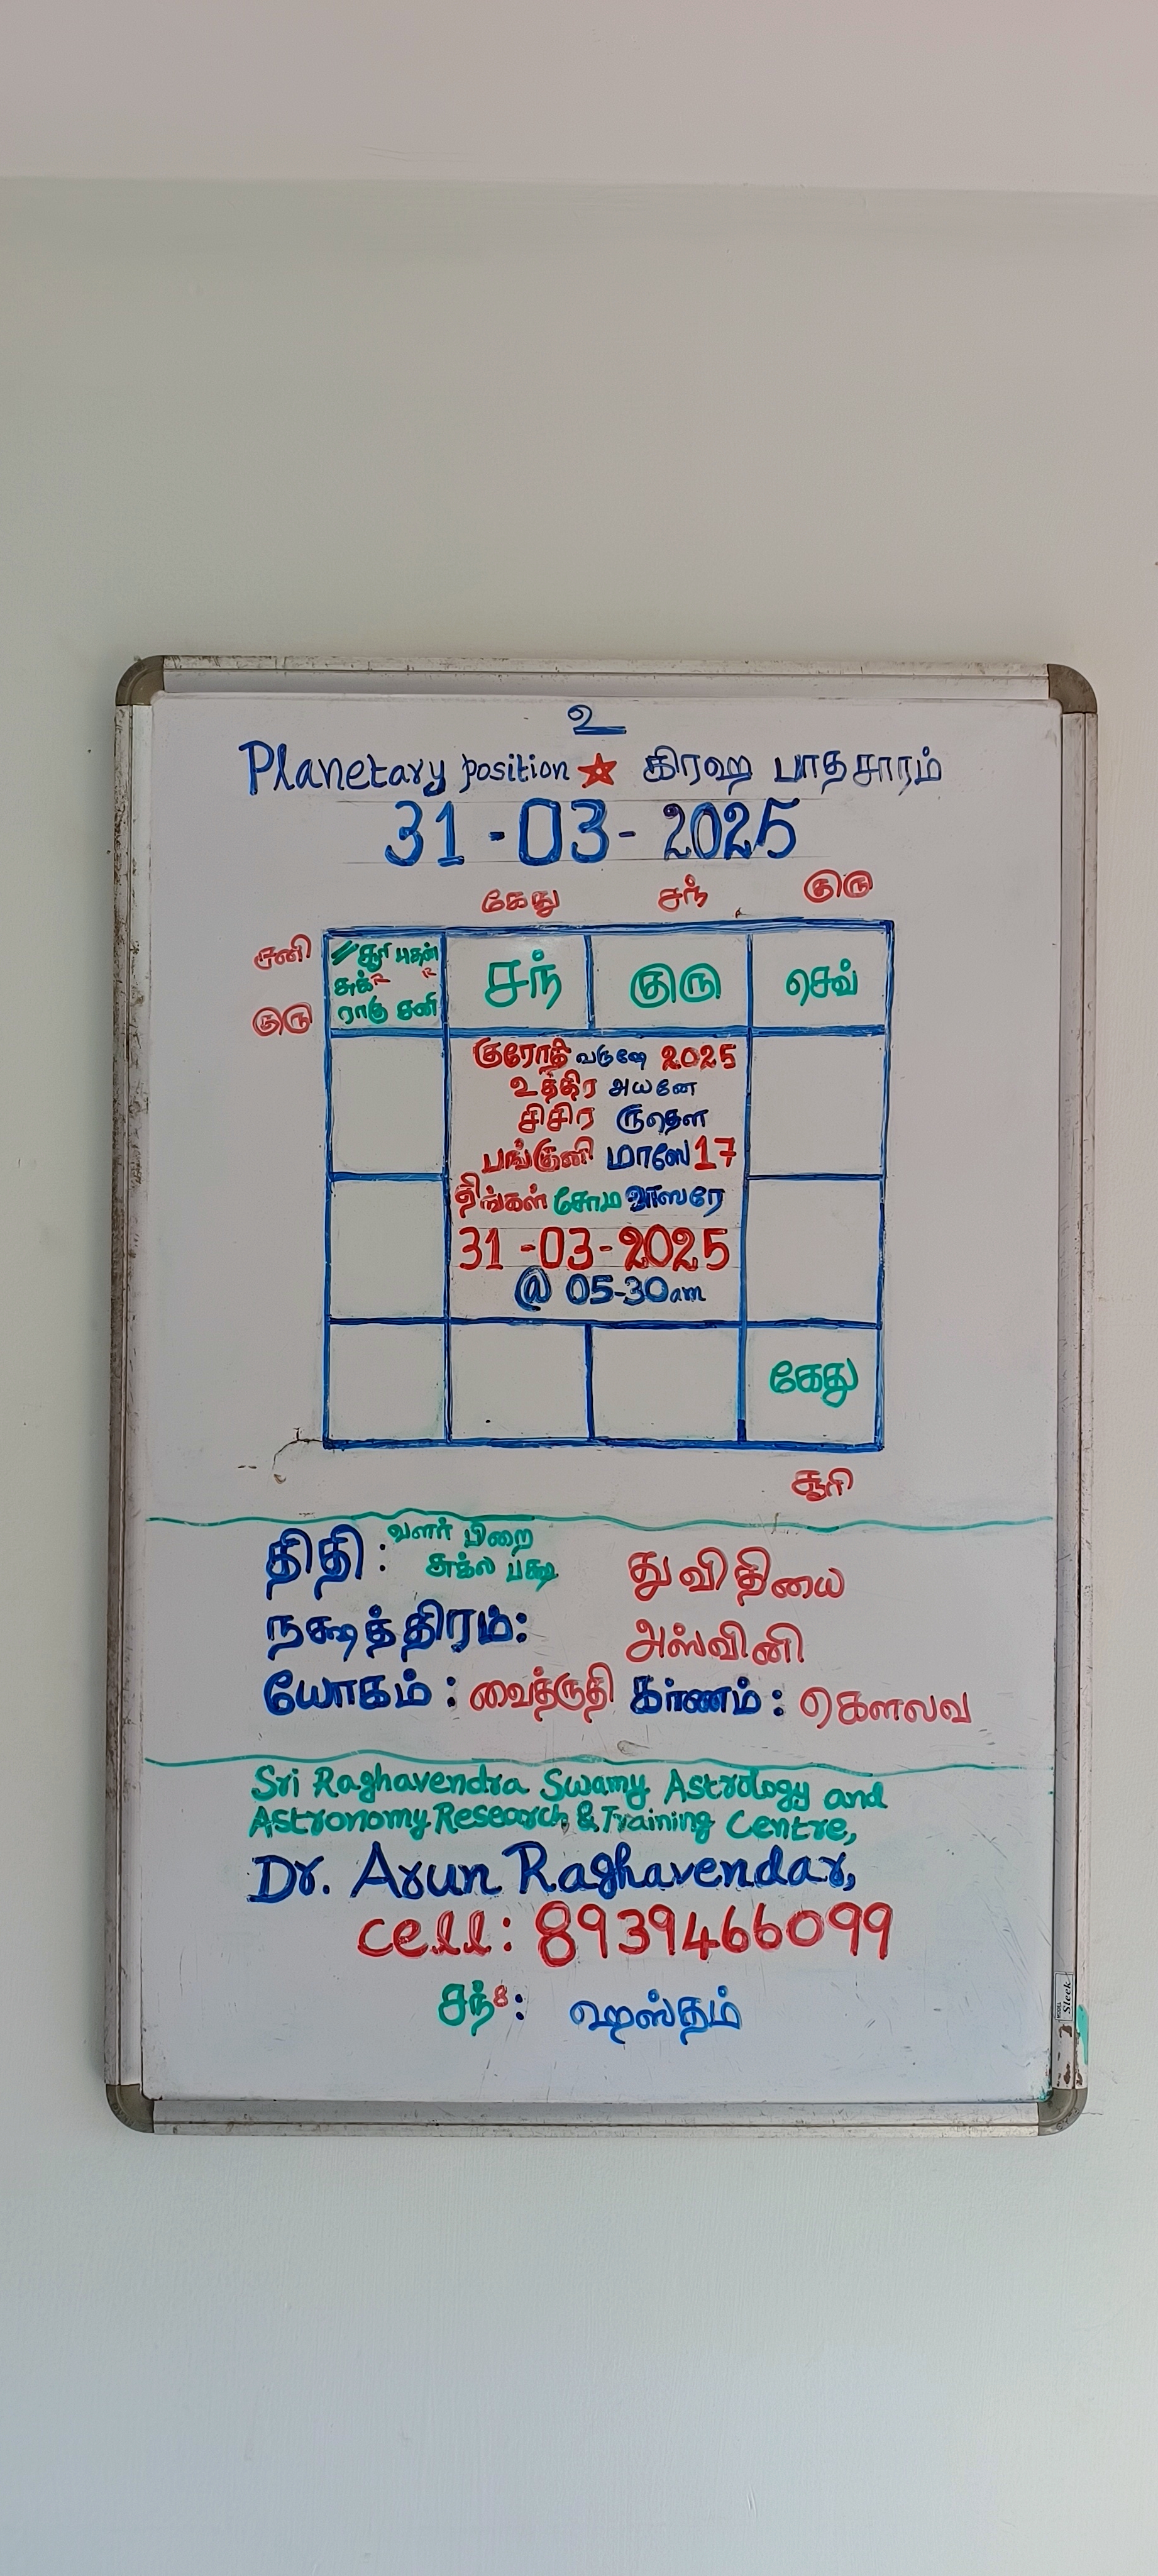 உ
Planetary position கிரஹ பாதசாரம்
31-03-2025
கேது சந் குரு
சனி
// சூரி புதன்
சுக் R R
ராகு சனி
சந்
குரு
செவ்
குரு
குரோதி வருஷே 2025
உத்திர அயனே
சிசிர ருதௌ
பங்குனி மாஸே 17
திங்கள் சோம வாஸரே
31-03-2025
@ 05-30am
கேது
சூரி
திதி: வளர் பிறை
சுக்ல பக்ஷ துவிதியை
நக்ஷத்திரம்: அஸ்வினி
யோகம்: வைத்ருதி கர்ணம்: கௌலவ
Sri Raghavendra Swamy Astrology and
Astronomy Research & Training Centre,
Dr. Arun Raghavendar,
cell: 8939466099
சந்8: ஹஸ்தம்
Sleek